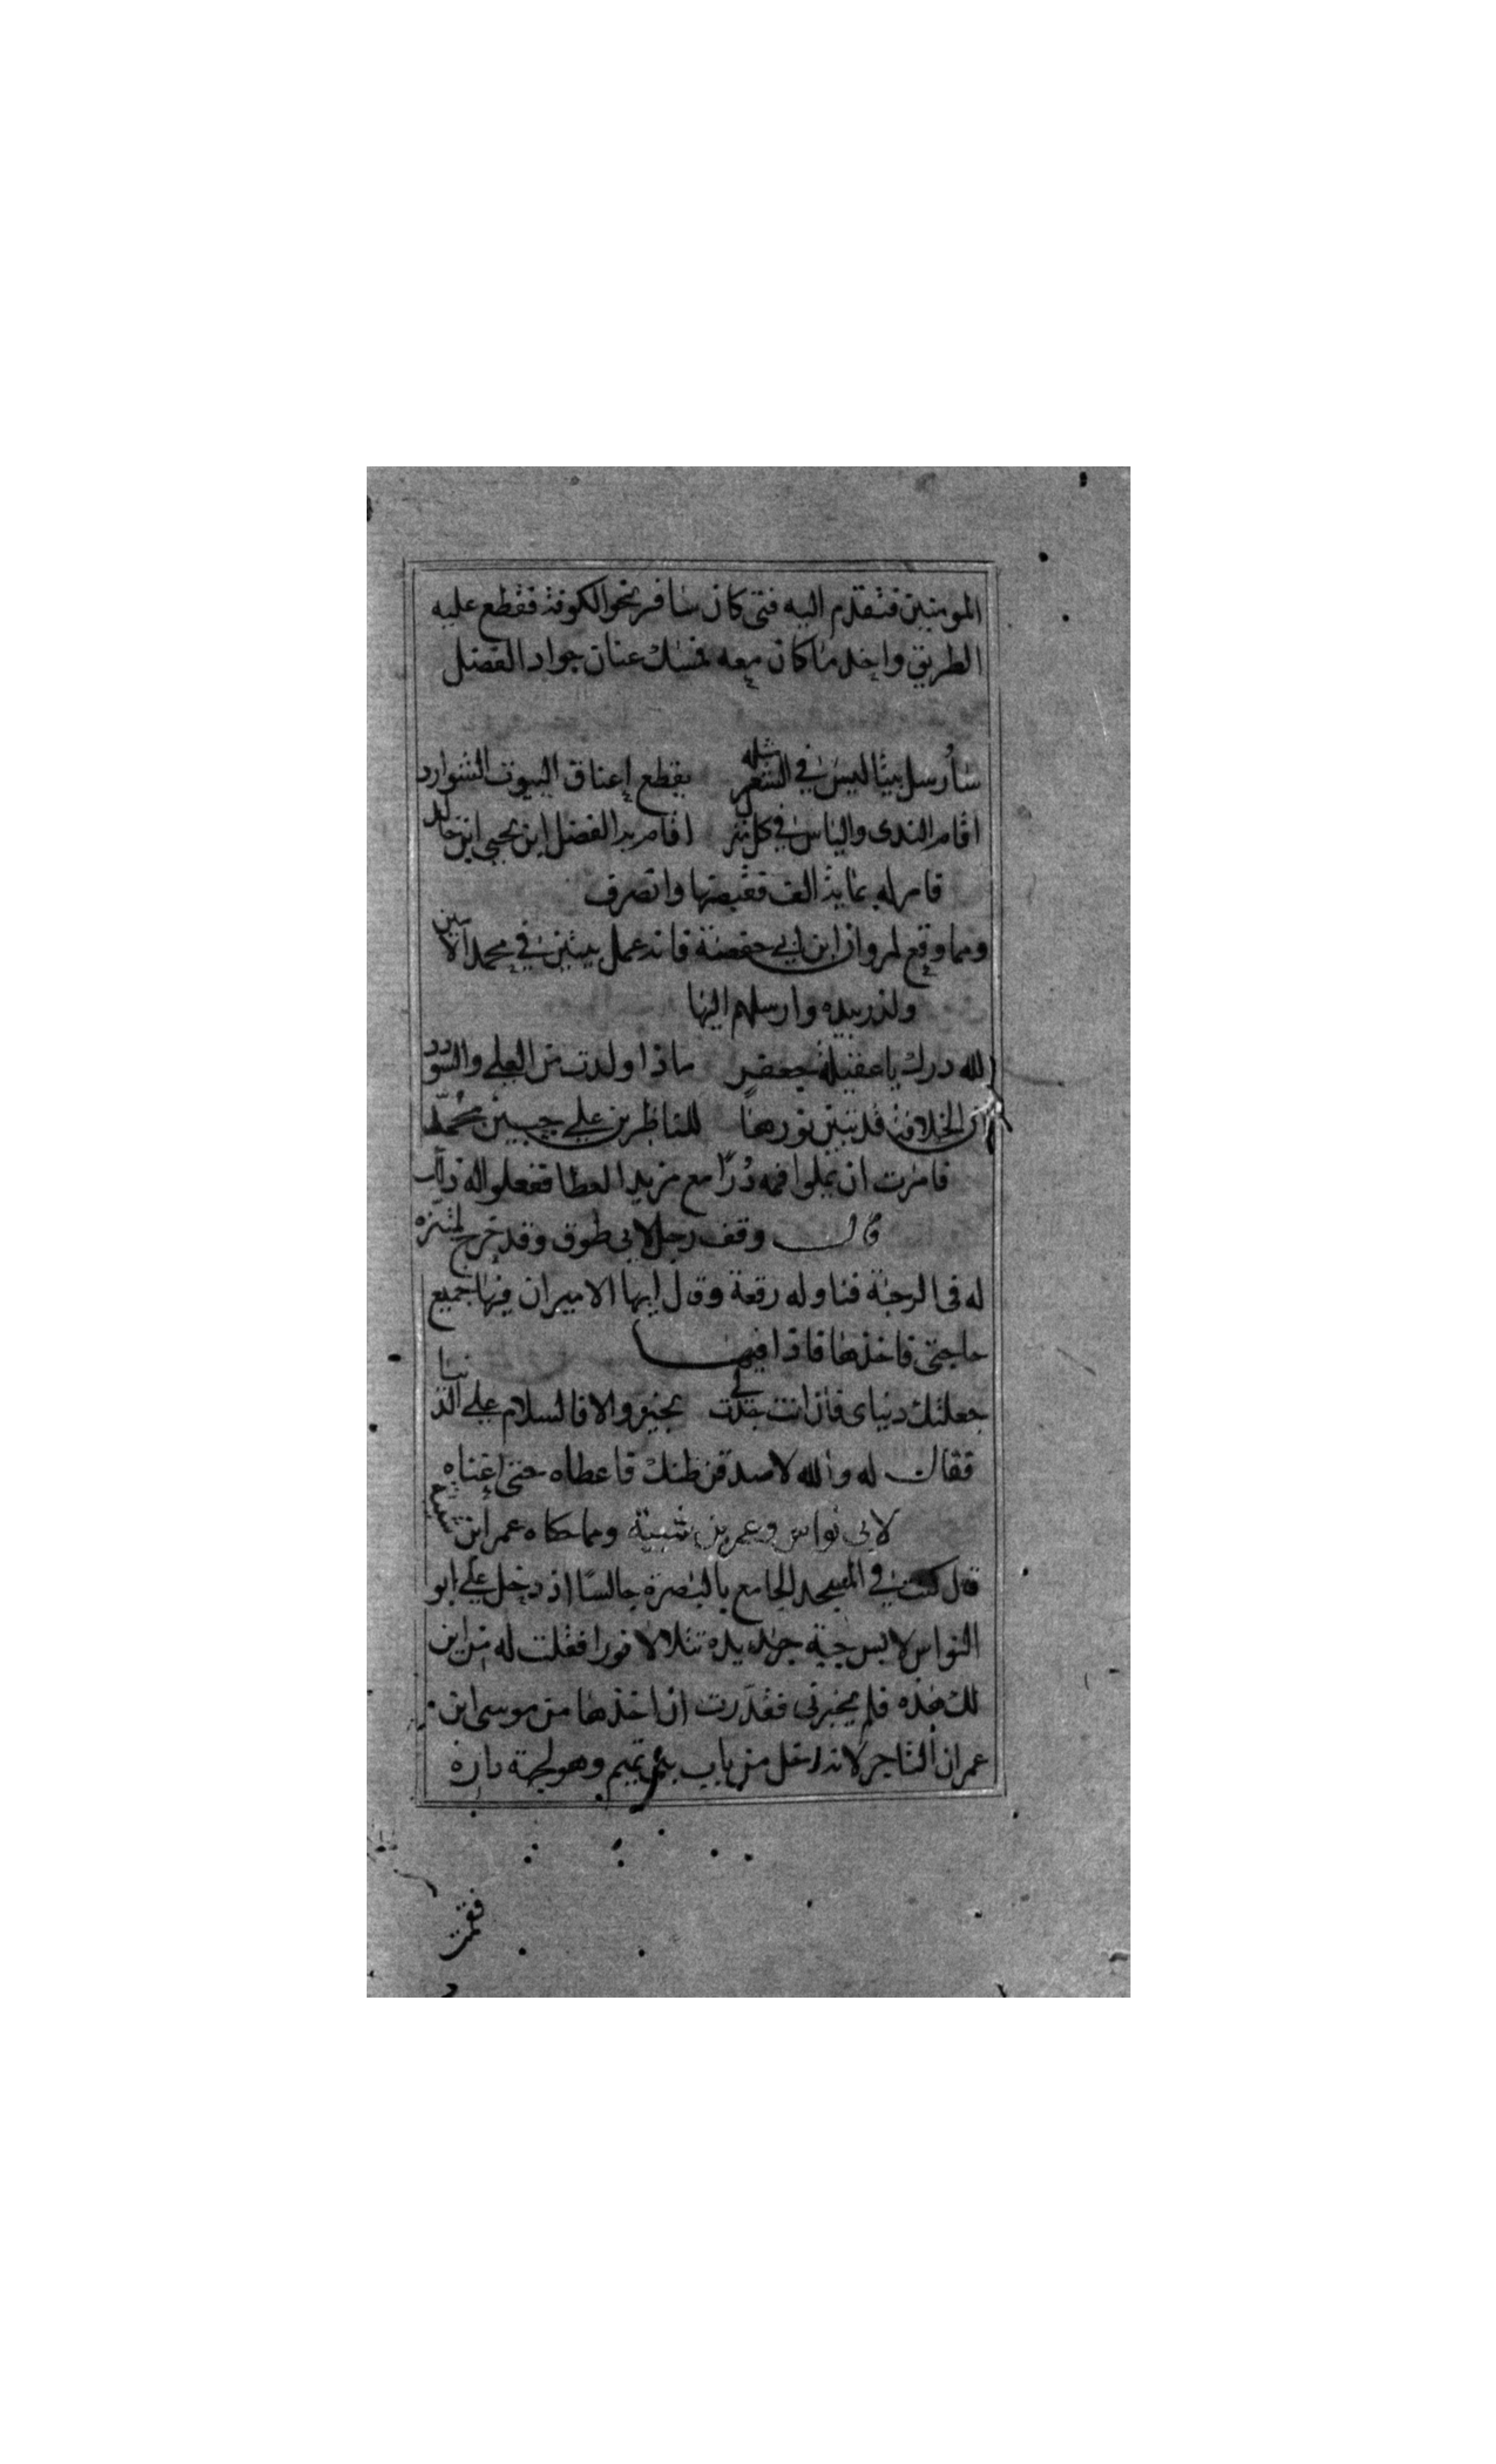 المومنين فتقدم اليه فتى كان سافر نحو الكوفة فقطع عليه
الطريق واخذ ما كان معه فمسك عنان جواد الفضل
سأرسل بيتا ليس في الشعر مثله يقطع اعناق البيوت الشوارد
اقام الندى والباس في كل اقام به الفضل ابن يحيى ابن خالد
فامر له بماية الف فقبضها وانصرف
ومما وقع لمروان ابن ابي حفصة فانه عمل بيتين في محمد الامين
ولد زبيده وارسلهم اليها
لله درك يا عقيلة جعفر ماذا ولدت من العلي والسودد
ان الخلافة قد تبين نورها للناظرين علي جبين محمد
فامرت ان يملوا فمه دُرًا مع مزيد العطا ففعلوا له ذلك
قال وقف رجل لابي طوق وقد خرج لمتنزه
له في الرحبة فناوله رقعة وقال ايها الامير ان فيها جميع
حاجتي فاخذها فاذا فيها
جعلتك دنياى فان انت جدت لي بخير والا فالسلام علي الدنيا
فقال له والله لاصدقن ظنك فاعطاه حتى اغناه
لابي نواس وعمر بن شبية ومما حكاه عمر ابن
قال كنت في المسجد الجامع بالبصرة جالسًا اذ دخل علي ابو
النواس لابس جبة جديده تتلالا نورا فقلت له من اين
لك هذه فلم يخبرني فقدرت ان اخذها من موسى ابن
عمران التاجر لانه دخل من باب بني تميم وهو لجهة داره
فقمت